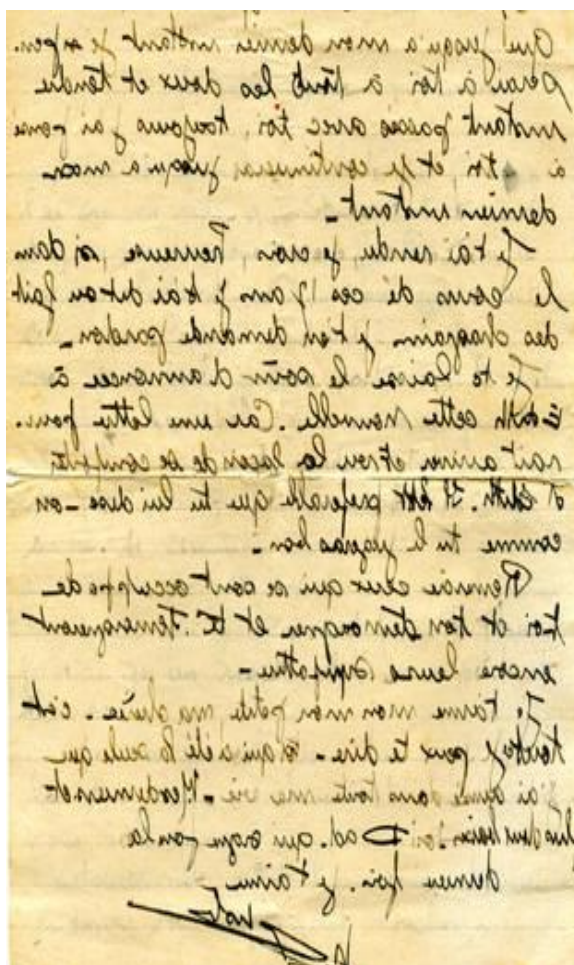 Que jusqu'a mon dernier instant je pen.
serai à toi à tout les doux et tendre
instant passés avec toi, toujours j'ai pensé
à toi, et je continuerai jusqu'a mon
dernier instant -
Je t'ai rendu je crois, heureuse, si, dans
le cours de ces 17 ans je t'ai dit ou fait
des chagrins je t'en demande pardon -
Je te laisse le soin d'annoncer à
Edith cette nouvelle. Car une lettre pour.
rait arriver et
d'Edith. Il est preferable que tu lui dise - ou
comme tu le jugeras bon -
Remercie ceux qui se sont occuppé de
toi et ton et te Temoignent
encore leurs sympathie -
Je t'aime mon mon petite ma cherie - c'est
tout je peux te dire - toi qui a été la seule que
j'ai aimé dans toute ma vie -
toi. Dad. qui signe pour la
dernière fois. je t'aime